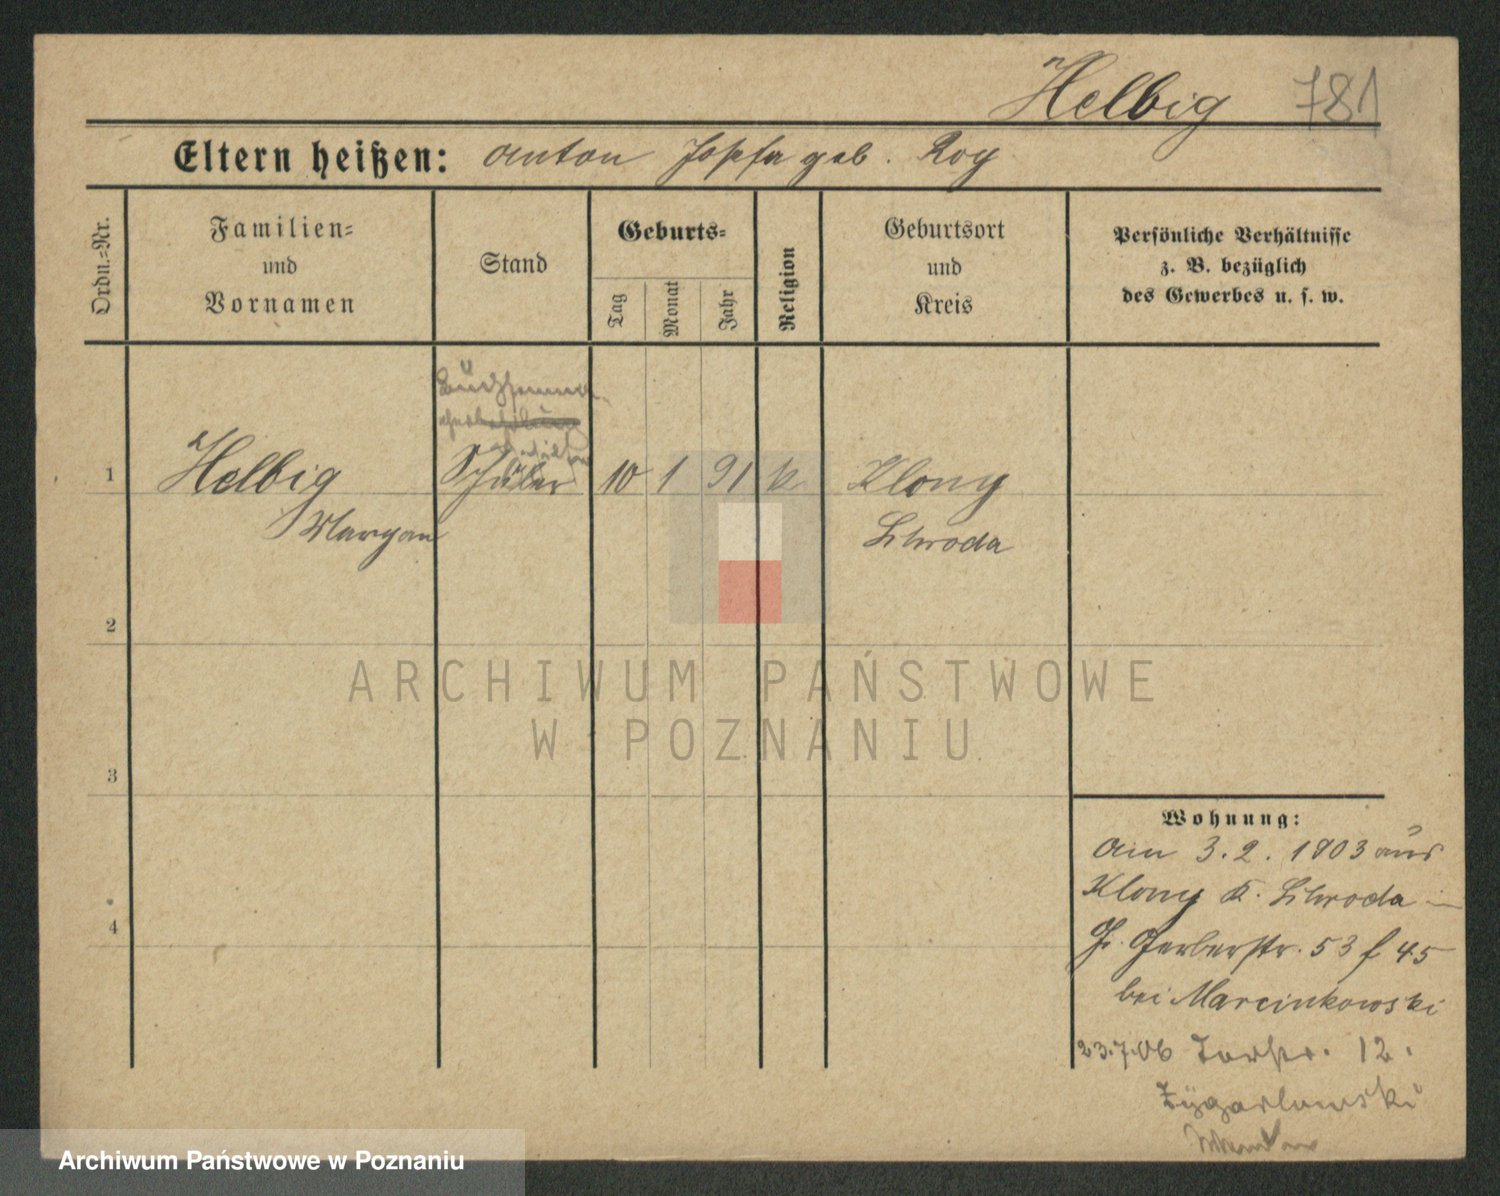 Helbig 781
Eltern heißen: Anton Josefa geb. Roy
Ordn.-Nr.
Familien-
und
Vornamen
Stand
Geburts-
Tag
Monat
Jahr
Religion
Geburtsort
und
Kreis
Persönliche Verhältnisse
z. B. bezüglich
des Gewerbes u. s. w.
1 Helbig Schüler 10 1 91 k Klony
Maryan Schroda
2
3
4
Wohnung:
Am 3.2.1903 aus
Klony K. Schroda
Gr. Gerberstr. 53 f 45
bei Marcinkowski
23.7.06 Torstr. 12.
ARCHIWUM PAŃSTWOWE
W POZNANIU
Archiwum Państwowe w Poznaniu